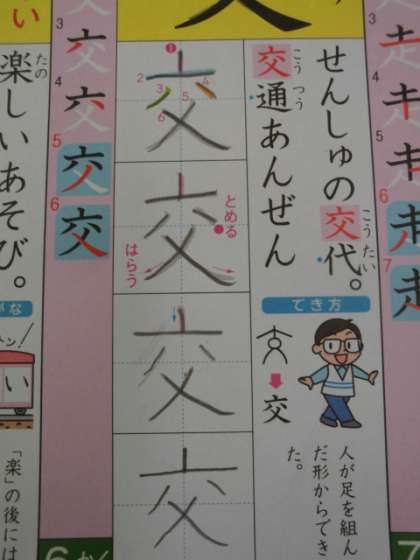 せんしゅの交代。
こうたい
交通あんぜん
こうつう
でき方
交
人が足を組ん
だ形からでき
た。
1
2
3
4
5
6
交
とめる
はらう
交
交
交
3
4
5
6
交
楽しいあそび。
たの
い
「楽」の後には
3
4
5
6
7